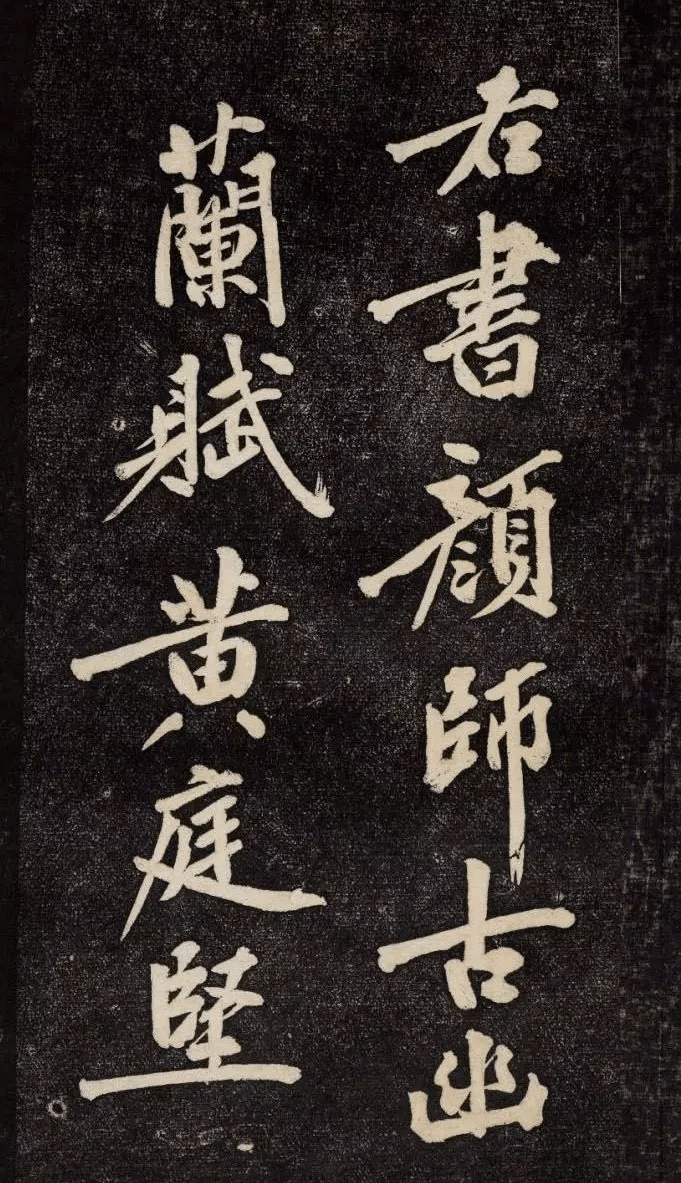 右書顔師古幽
蘭賦黄庭堅